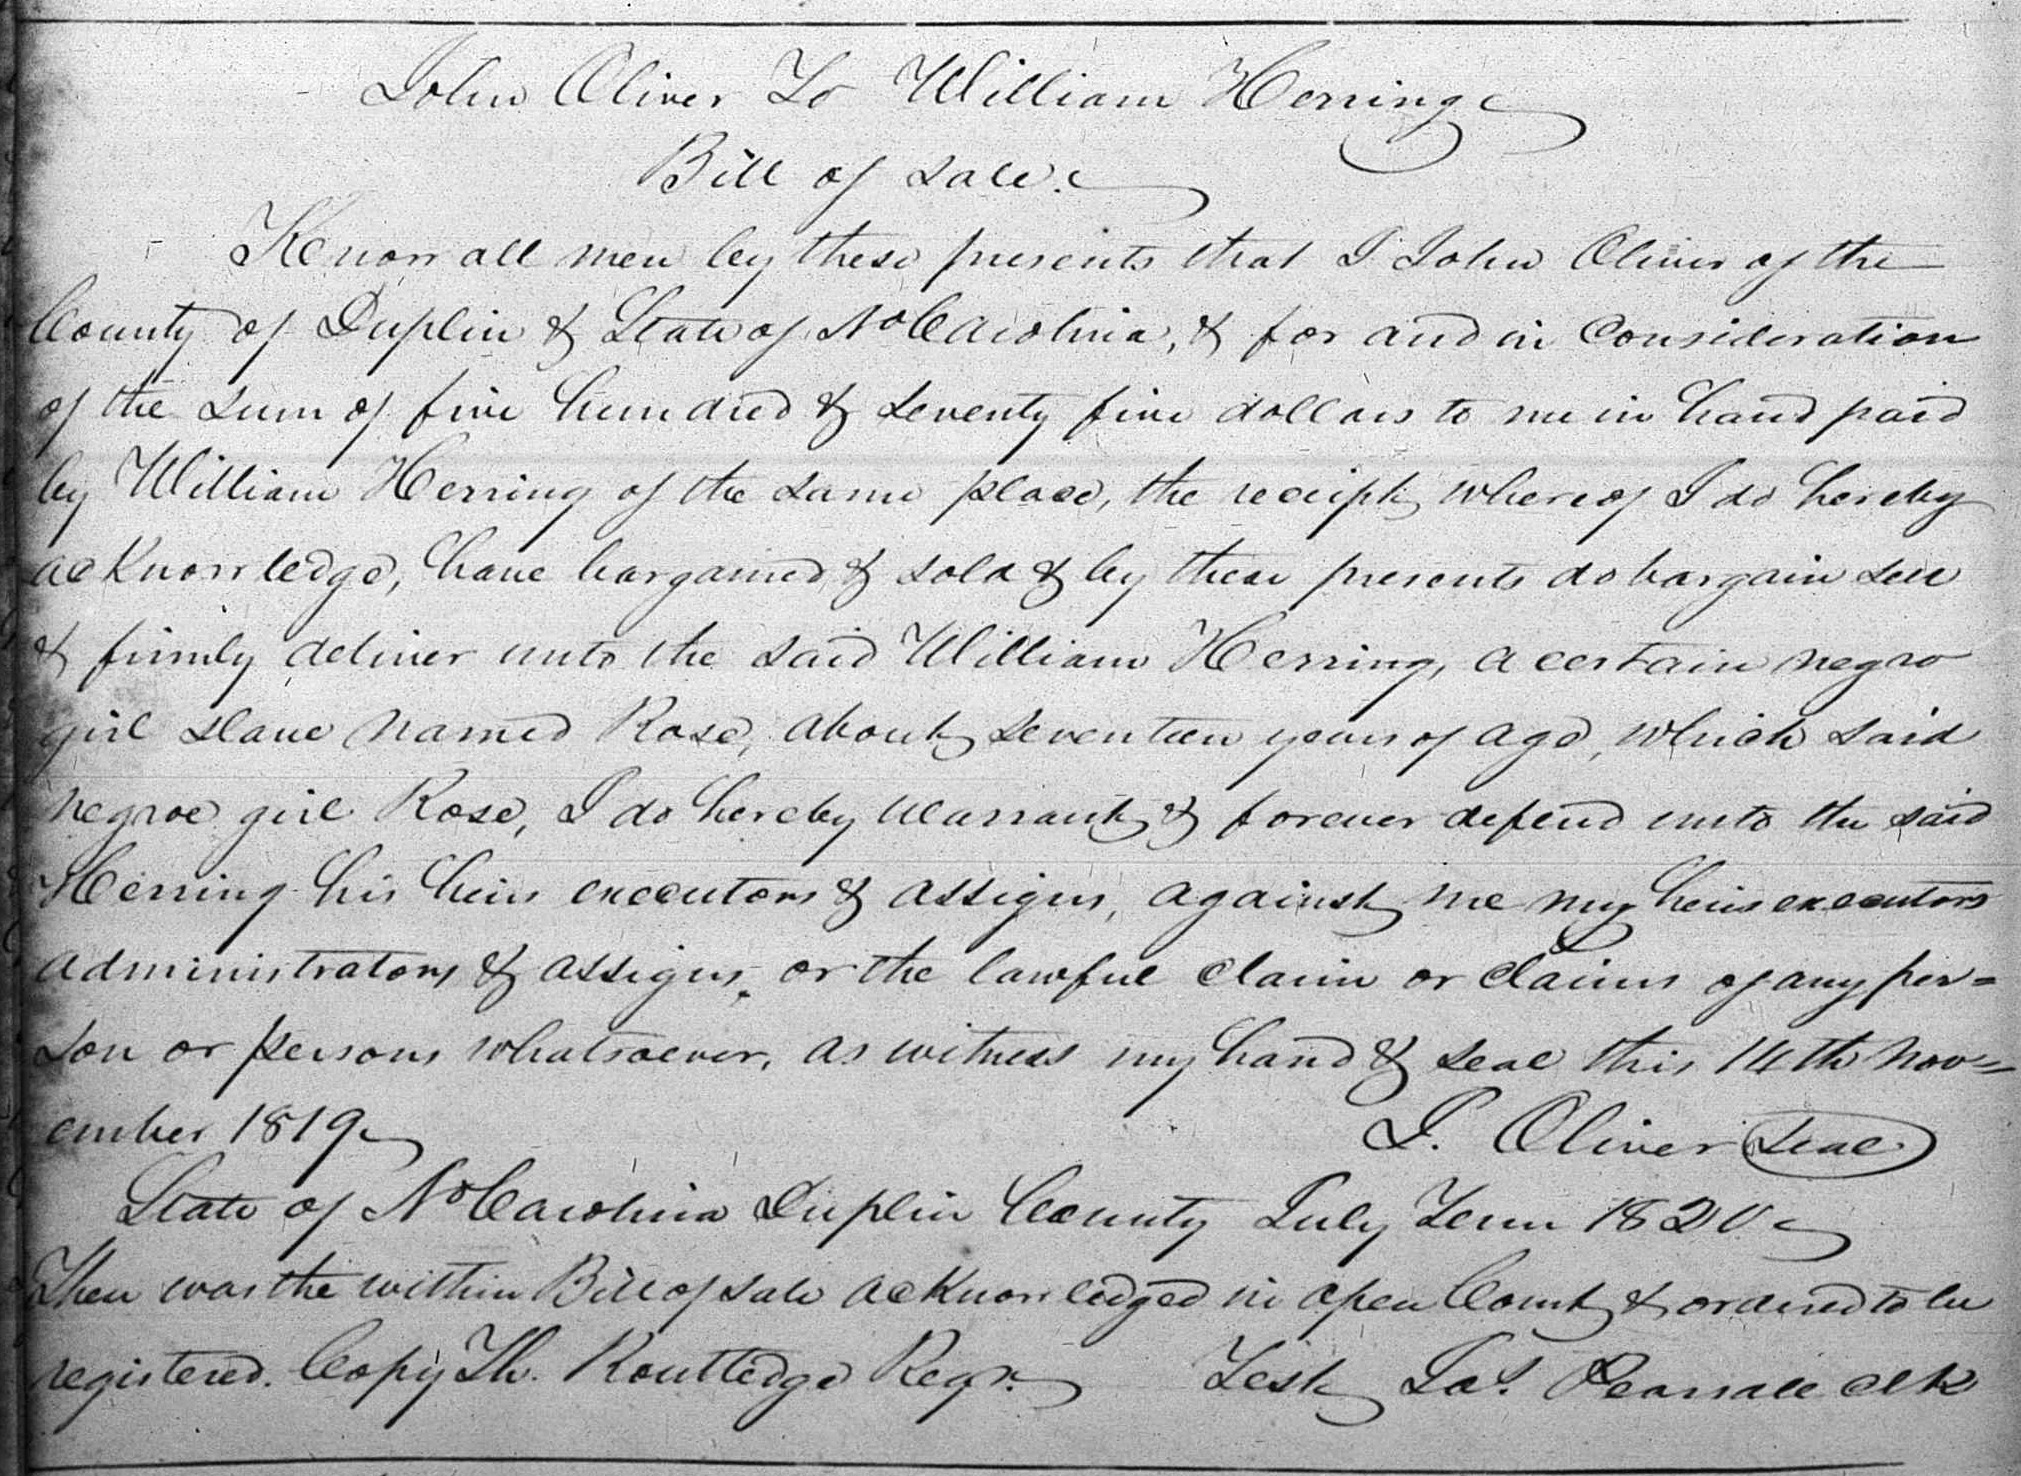 John Oliver To William Herring
Bill of Sale.
Know all men by these presents that I John Oliver of the
County of Duplin & State of No Carolina, & for and in Consideration
of the sum of five hundred & seventy five dollars to me in hand paid
by William Herring of the same place, the receipt whereof I do hereby
acknowledge, have bargained & sold & by these presents do bargain sell
& firmly deliver unto the said William Herring, a certain negro
girl slave named Rose, about seventeen years of age, which said
negroe girl Rose, I do hereby warrant & forever defend unto the said
Herring his heirs executors & assigns, against me my heirs executors
administrators & assigns, or the lawful claim or claims of any per=
son or persons whatsoever, as witness my hand & seal this 14th Nov=
ember 1819
J. Oliver Seal
State of No Carolina Duplin County July Term 1820
Then was the within Bill of sale acknowledged in open Court & ordered to be
registered. Copy Th. Routledge Regr. Test Jas. Pearsall clk